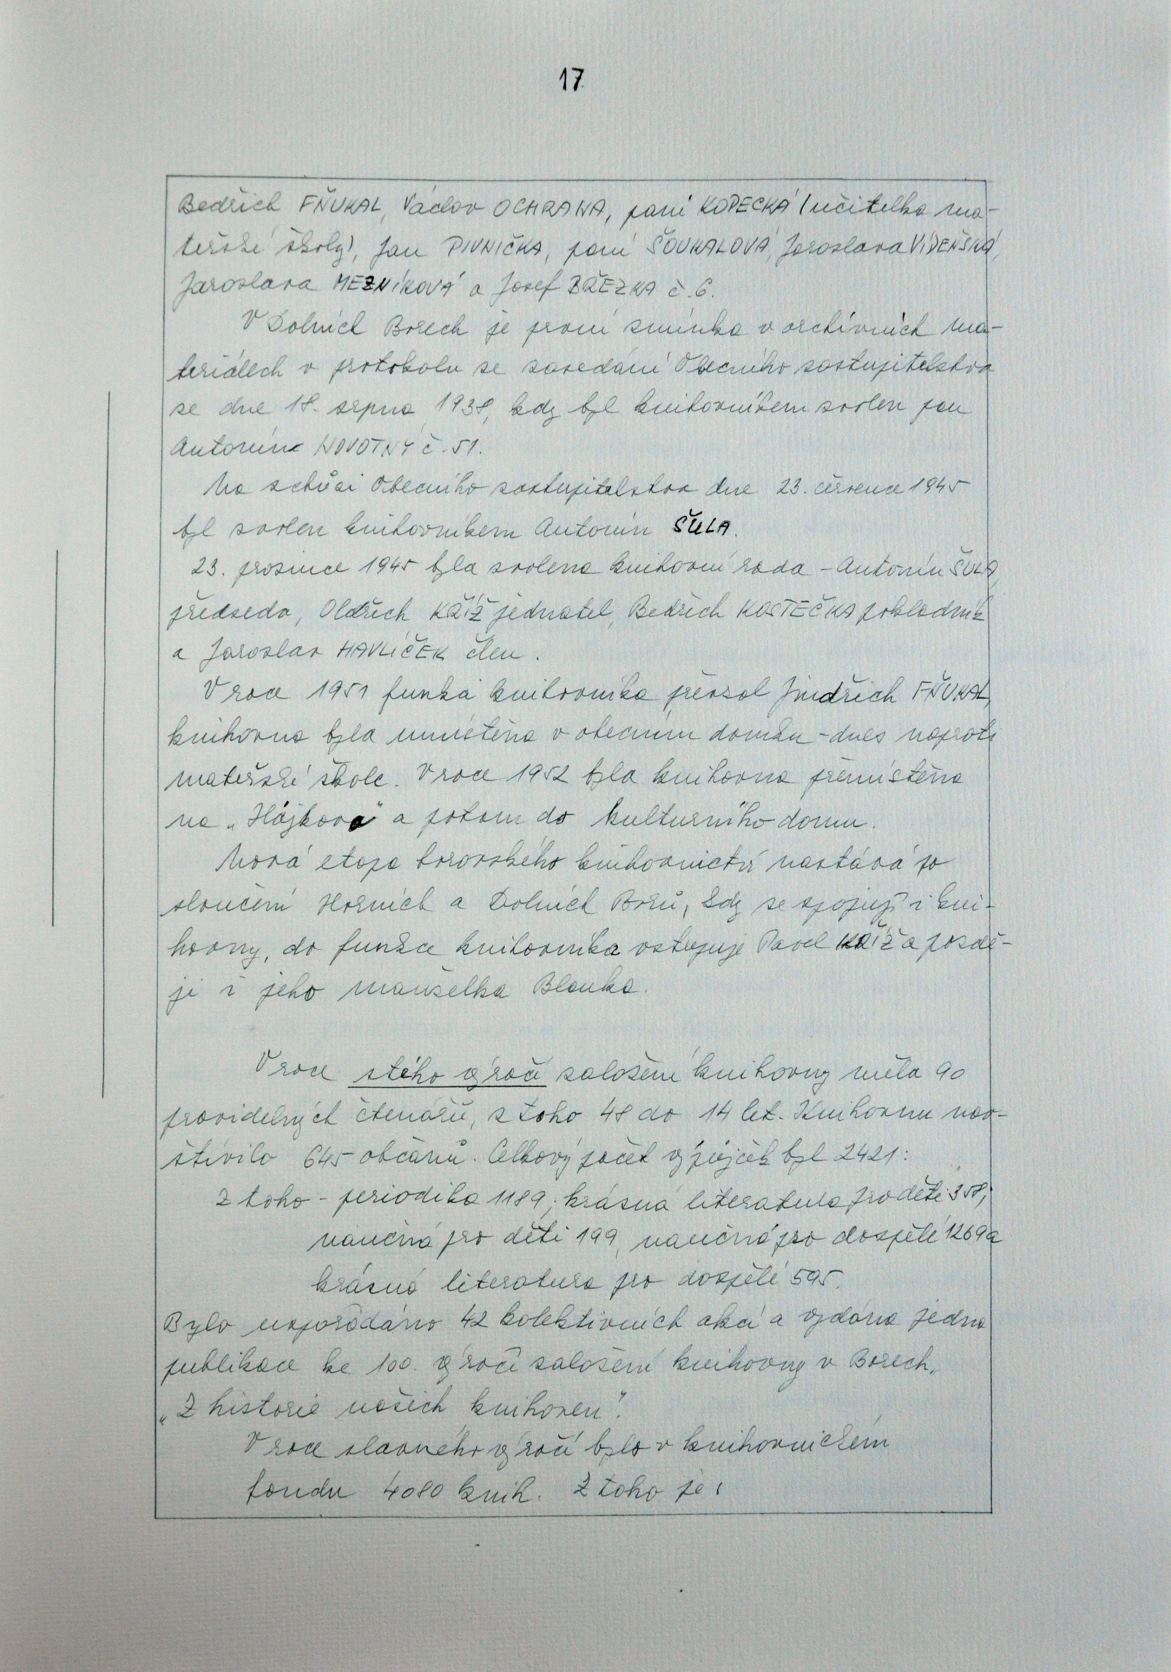 17
Bedřich FŇUKAL, Václav OCHRANA, paní KOPECKÁ (učitelka ma-
teřské školy), Jan PIVNIČKA, paní ŠOUKALOVÁ, Jaroslava VÍDEŇSKÁ,
Jaroslava MEZNÍKOVÁ a Josef BŘEZKA č. 6.
V Dolních Borech je první zmínka v archívních ma-
teriálech v protokolu ze zasedání Obecního zastupitelstva
ze dne 18. srpna 1938, kdy byl knihovníkem zvolen pan
Antonín NOVOTNÝ č. 51.
Na schůzi Obecního zastupitelstva dne 23. července 1945
byl zvolen knihovníkem Antonín ŠULA.
23. prosince 1945 byla zvolena knihovní rada - Antonín ŠULA,
předseda, Oldřich KŘÍŽ jednatel, Bedřich KOSTEČKA pokladník
a Jaroslav HAVLÍČEK člen.
V roce 1951 funkci knihovníka převzal Jindřich FŇUKAL,
knihovna byla umístěna v obecním domku - dnes naproti
mateřské škole. V roce 1952 byla knihovna přemístěna
na „Hájkovo" a potom do kulturního domu.
Nová etapa borovského knihovnictví nastává po
sloučení Horních a Dolních Borů, kdy se spojují i kni-
hovny, do funkce knihovníka vstupuje Pavel KŘÍŽ a pozdě-
ji i jeho manželka Blanka.
V roce stého výročí založení knihovny měla 90
pravidelných čtenářů, z toho 48 do 14 let. Knihovnu nav-
štívilo 645 občanů. Celkový počet výpůjček byl 2421:
Z toho - periodika 1189; krásná literatura pro děti 358;
naučná pro děti 199, naučná pro dospělé 1269 a
krásná literatura pro dospělé 595.
Bylo uspořádáno 42 kolektivních akcí a vydána jedna
publikace ke 100. výročí založení knihovny v Borech,
„Z historie našich knihoven".
V roce slavného výročí bylo v knihovnickém
fondu 4080 knih. Z toho je: